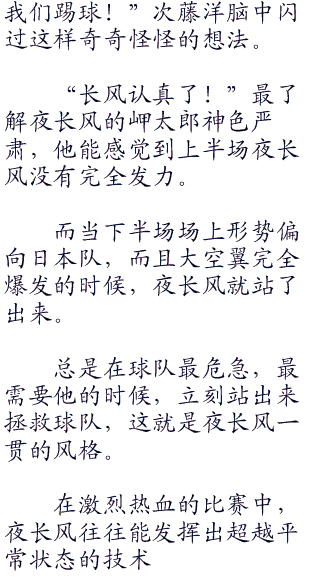 我们踢球！”次藤洋脑中闪
过这样奇奇怪怪的想法。
“长风认真了！”最了
解夜长风的岬太郎神色严
肃，他能感觉到上半场夜长
风没有完全发力。
而当下半场场上形势偏
向日本队，而且大空翼完全
爆发的时候，夜长风就站了
出来。
总是在球队最危急，最
需要他的时候，立刻站出来
拯救球队，这就是夜长风一
贯的风格。
在激烈热血的比赛中，
夜长风往往能发挥出超越平
常状态的技术